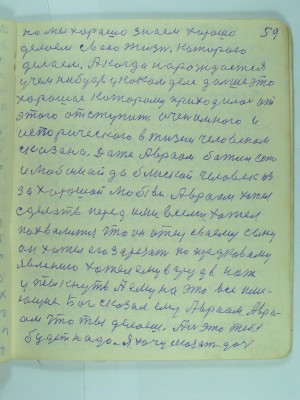 59
но мы хорошо знаем хорошо
делаем свою жизнь которого
делаем. А когда нарождается
у чем нибудь у каком деле дальше это
хорошая которому приходилося от
этого отступить очень много и
исторического в жизни человеком
сказано. Даже Авраам
и любимай да близкой человек
за хорошой Авраам хотел
сделать перед ими всеми хотел
похвалится что он отец своему сыну
он хотел его зарезать по
явлению хотел ему в грудь нож
у ткнуть А ему на это все
Бог сказал ему Авраам Авра-
ам что ты делаеш. Аи это тебе
будет надо. Я хочу сказать